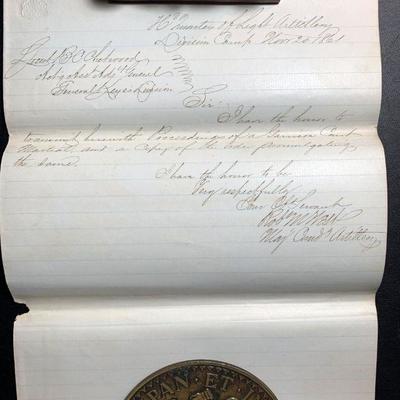 Hd Quarters of Light Artillery
Division Camp Nov 20 1861
Lieut B C Chetwood
Act Asst Adjt General
General Keyes Division
Sir:
I have the honor to
transmit herewith Proceedings of a Garrison Court
Martial and a Copy of the order promulgating
the same.
I have the honor to be
Very respectfully
Your Obt Servant
Robt M West
Maj Comdg Artillery
PAN ET